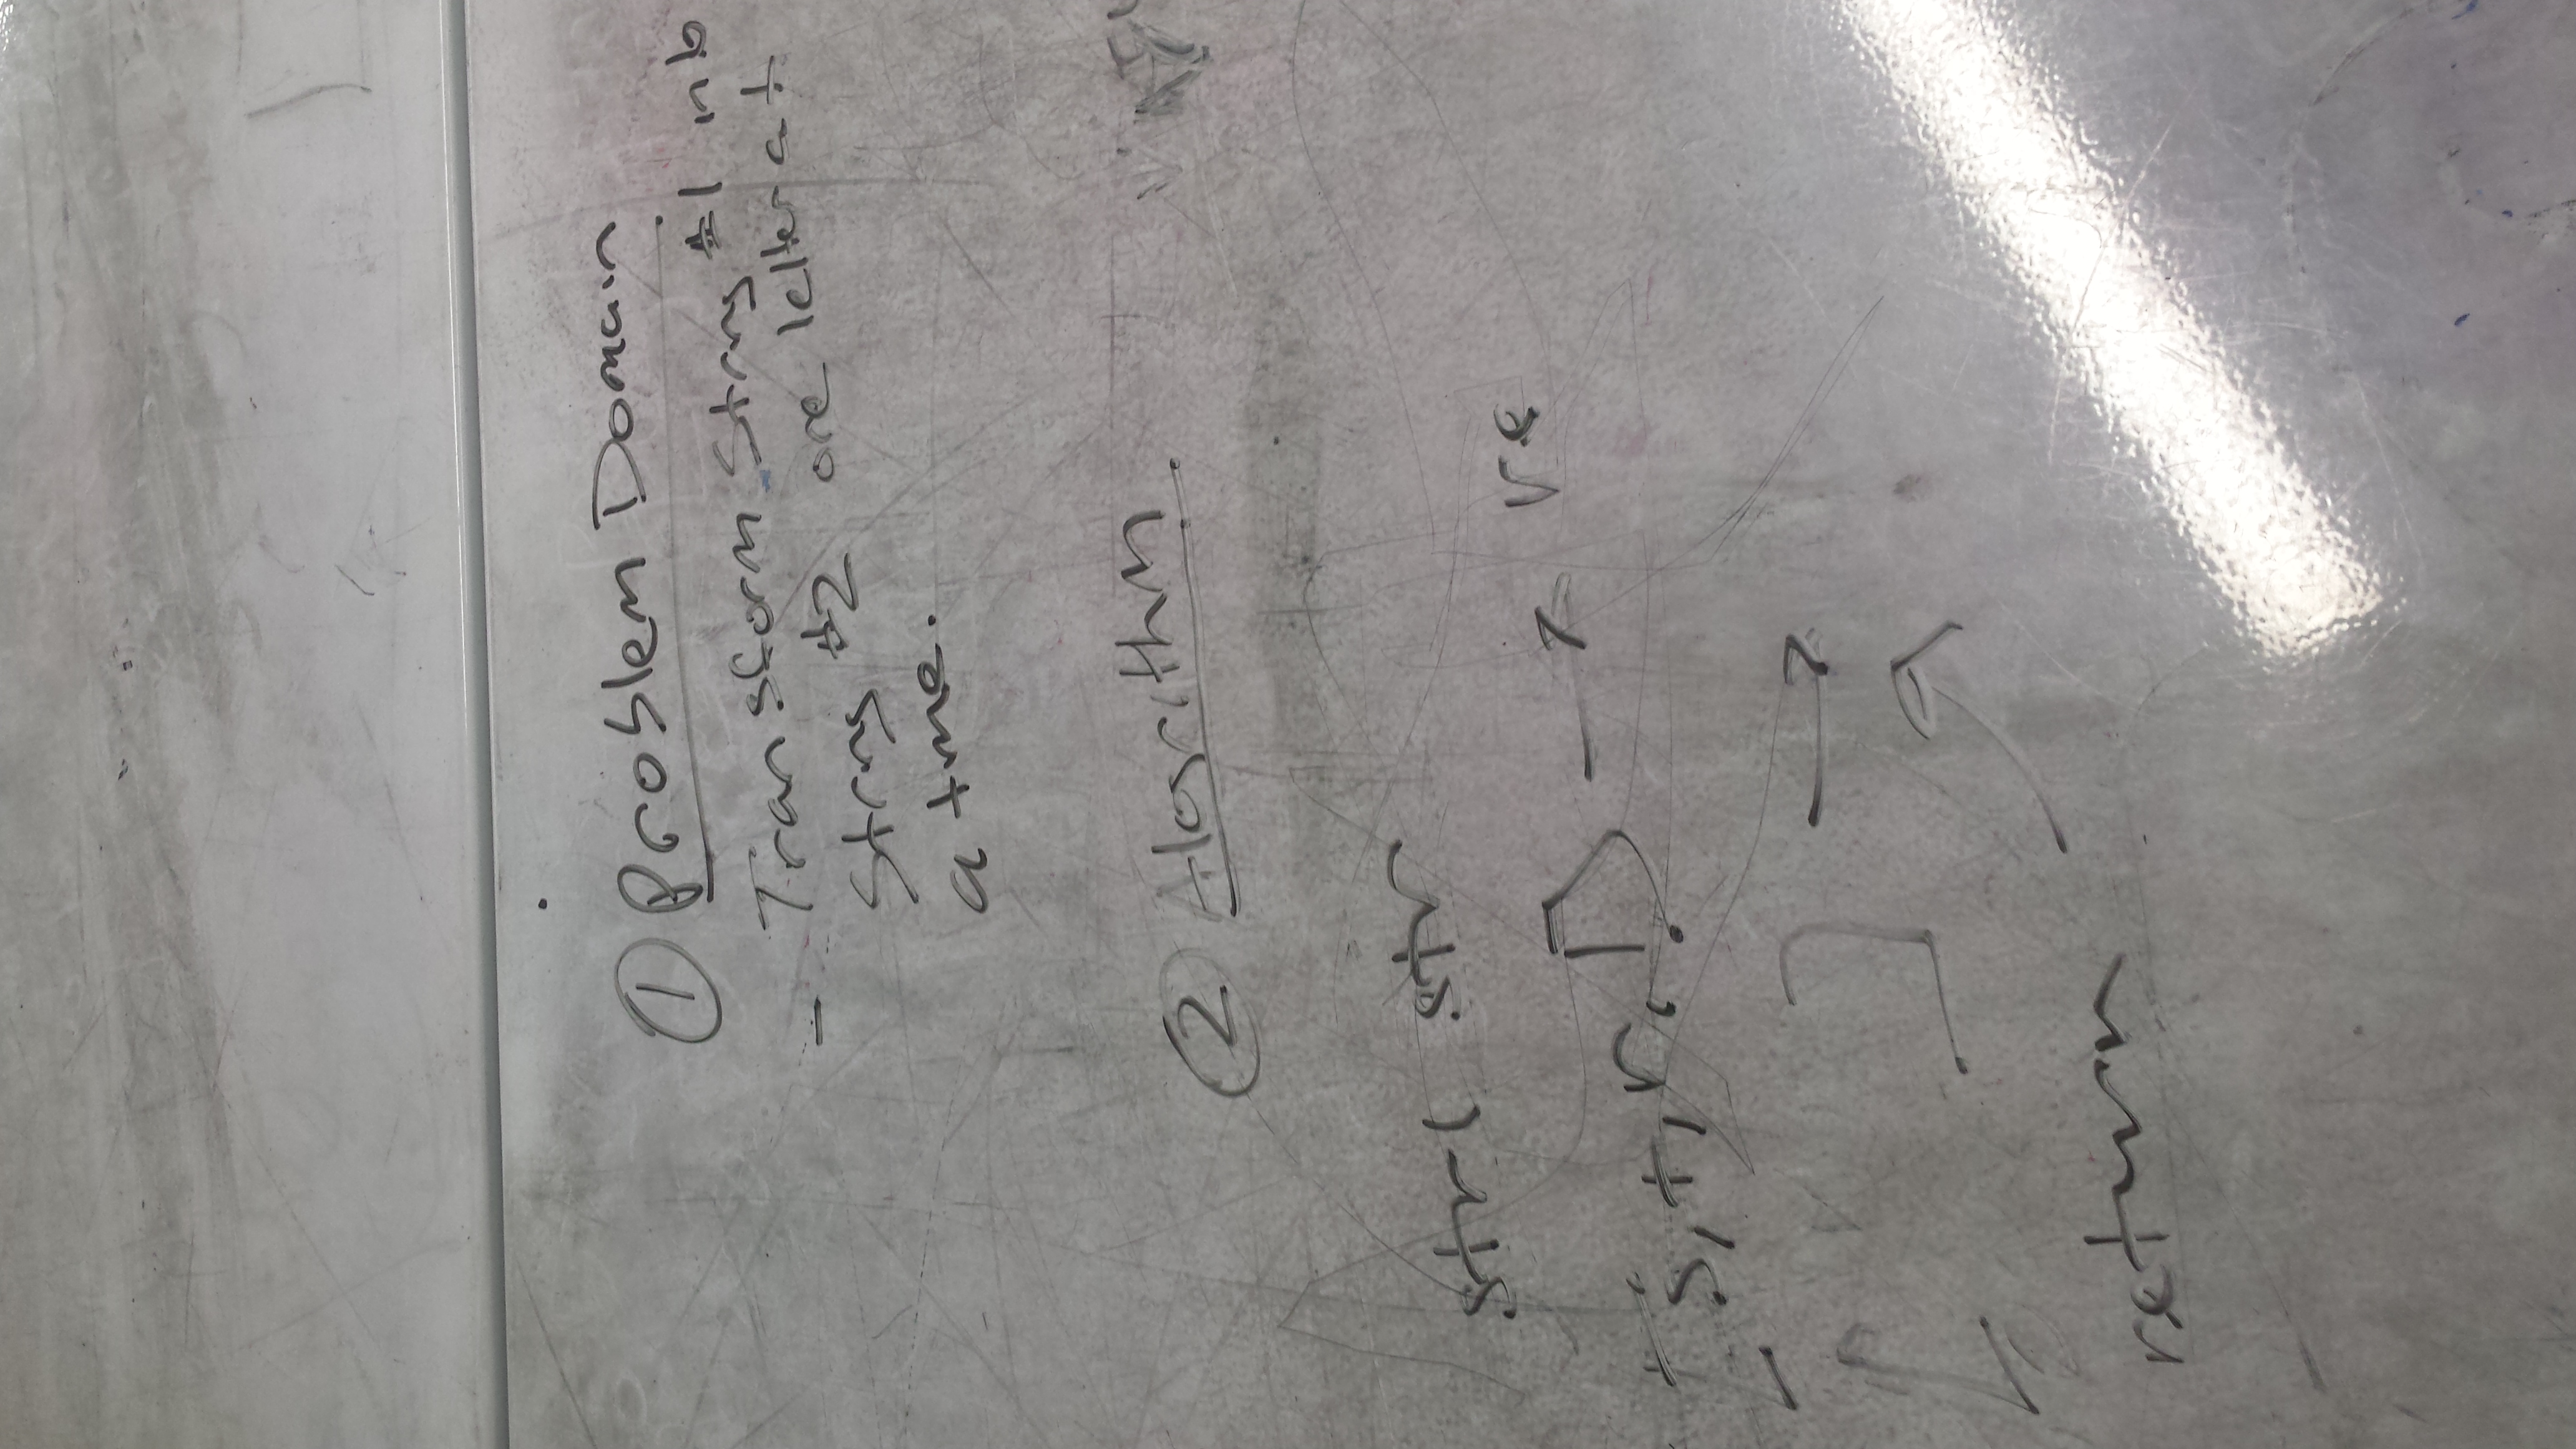 ① Problem Domain
- Transform String #1 into
String #2 one letter at
a time.
② Alogrithm
str1 str
[s,t,r,.] → re
[ ] →
return